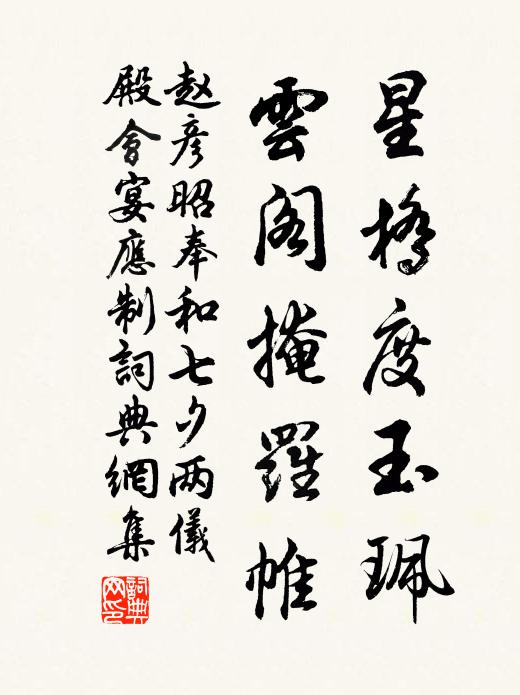 星橋度玉珮
雲阁掩羅帷
赵彦昭奉和七夕两儀
殿會宴應制詞典網集
詞典
网印